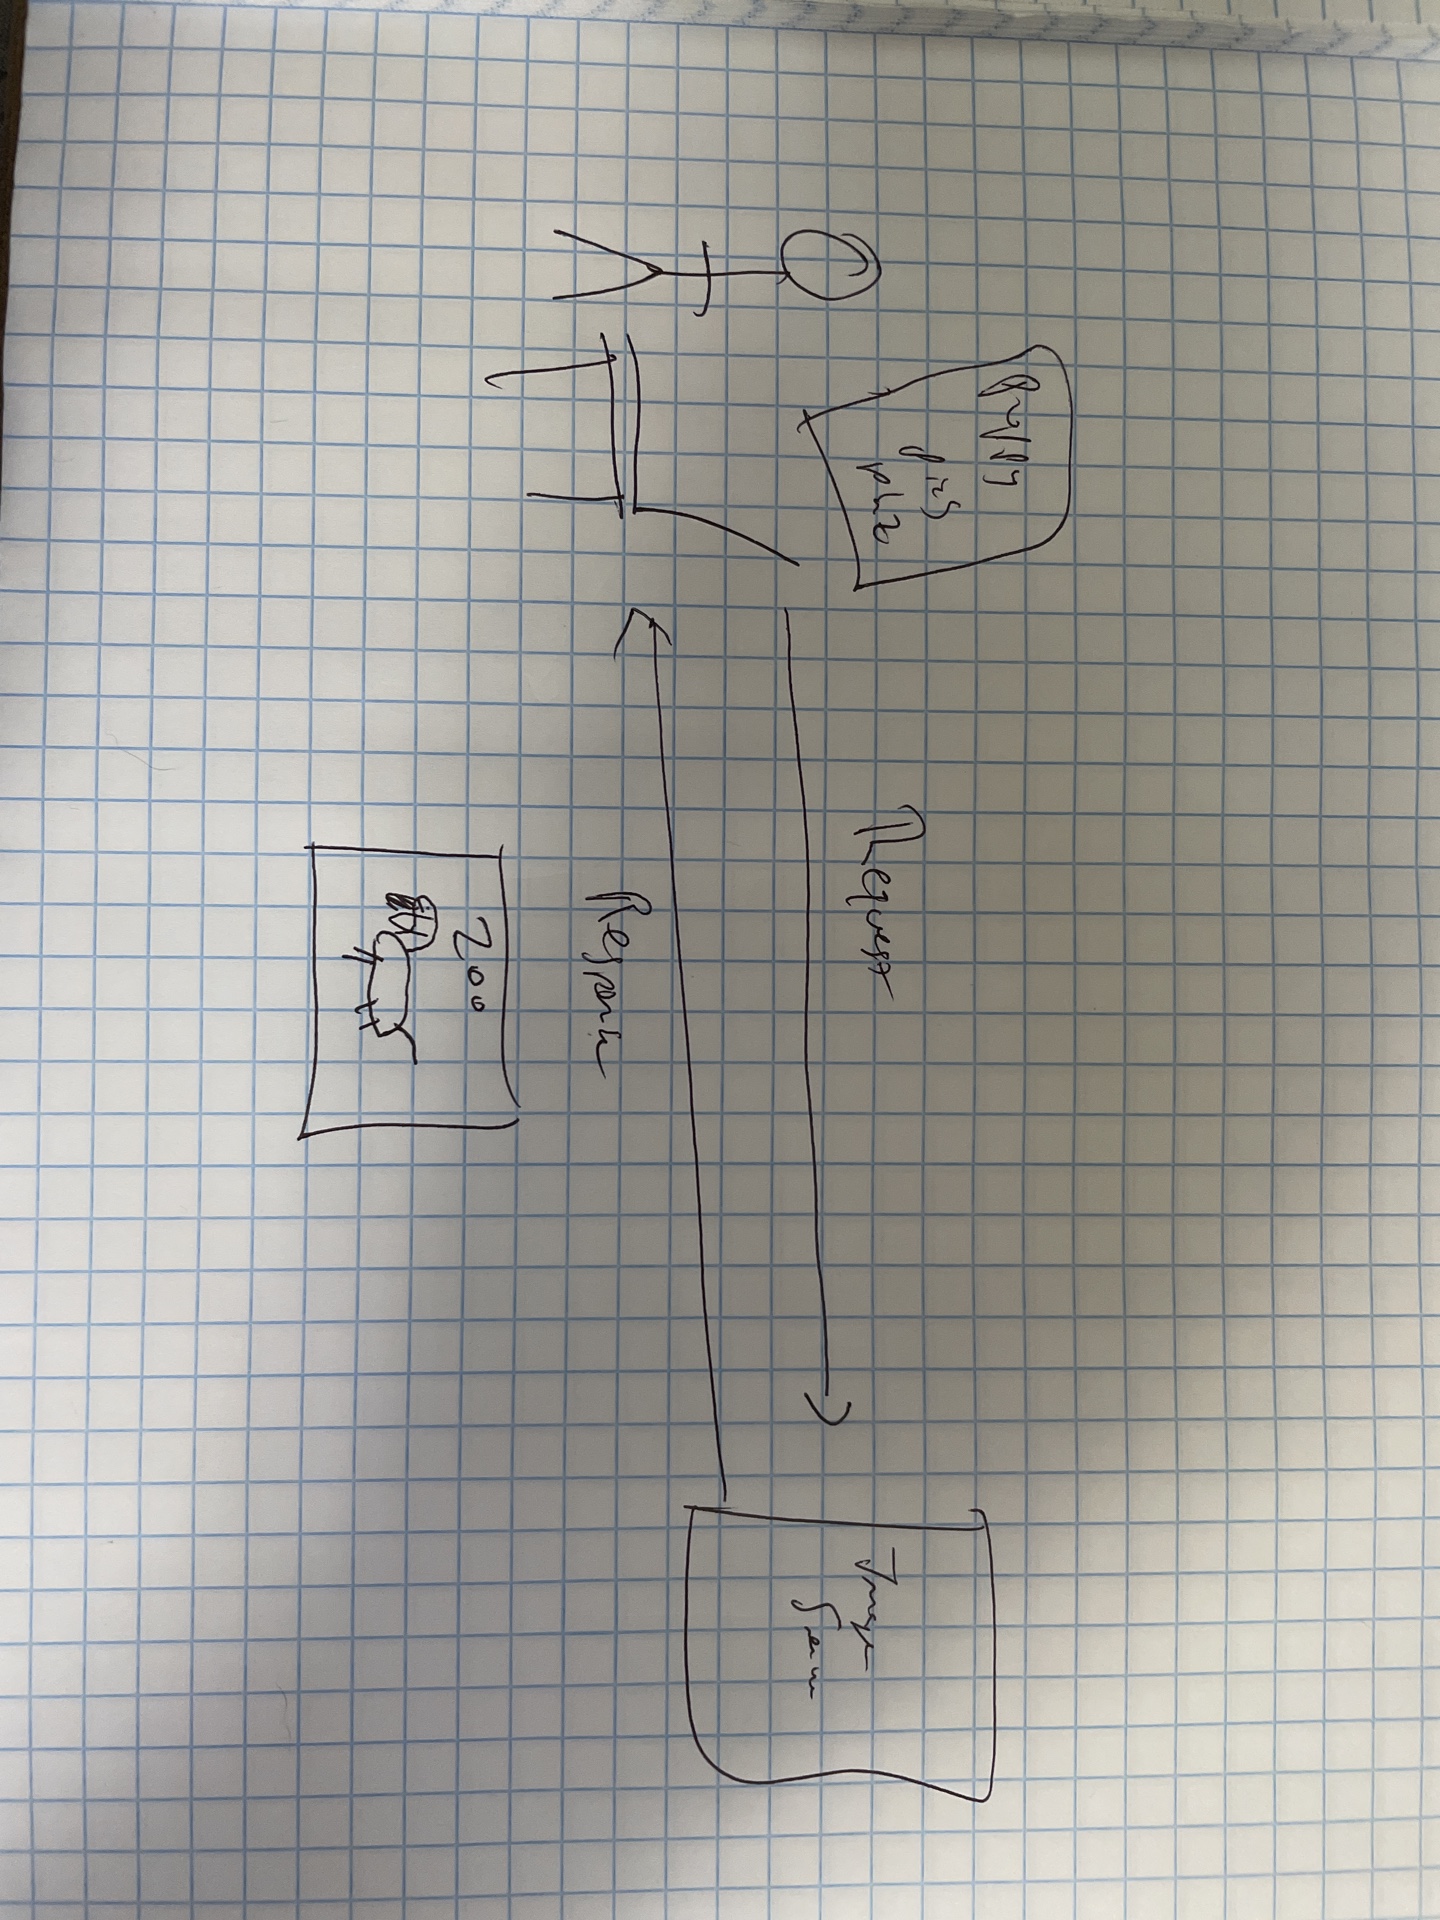 puppy
pics
plz
Request
Image
Server
Response
200